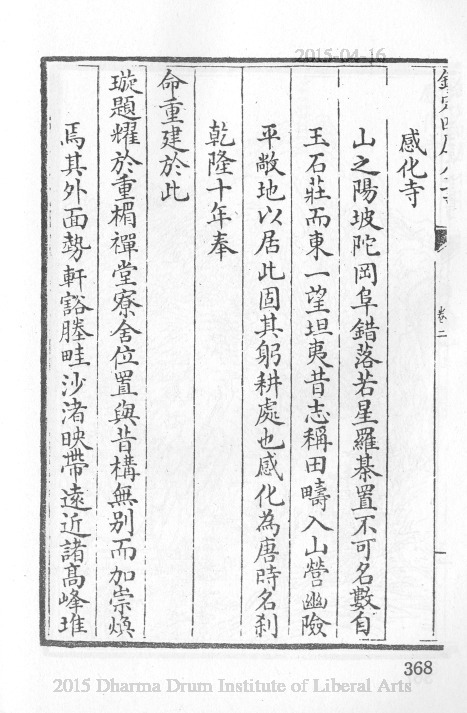 2015-04-16
感化寺
山之陽坡陀岡阜錯落若星羅棊置不可名數自
玉石莊而東一望坦夷昔志稱田疇入山營幽險
平敞地以居此固其躬耕處也感化為唐時名刹
乾隆十年奉
命重建於此
璇題耀於重楣禪堂寮舍位置與昔構無别而加崇煥
焉其外面勢軒豁塍畦沙渚映帶遠近諸髙峰堆
卷二
368
2015 Dharma Drum Institute of Liberal Arts